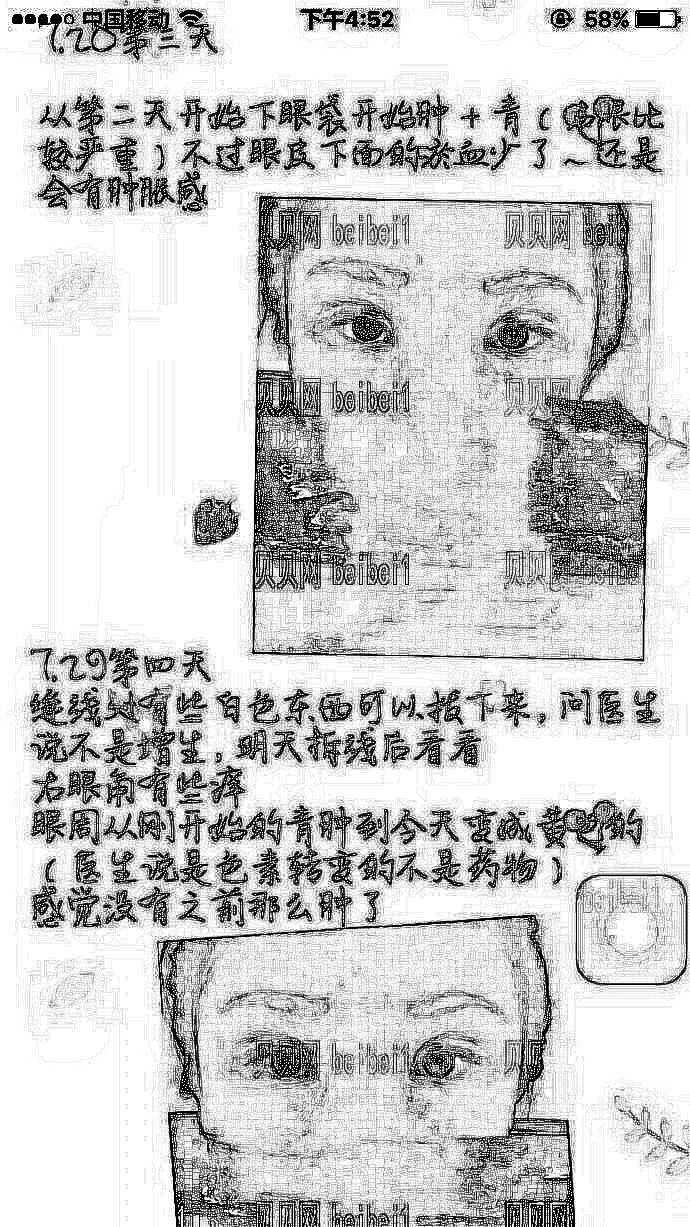 中国移动 下午4:52 58%
7.20第三天
从第二天开始下眼袋开始肿+青（右眼比
较严重）不过眼皮下面的淤血少了~还是
会有肿胀感
贝贝网 beibei1 贝贝网 bei
贝贝网 beibei1 贝贝网
贝贝网 beibei1 贝贝网 beibe
7.29第四天
缝线处有些白色东西可以拔下来，问医生
说不是增生，明天拆线后看看
右眼角有些痒
眼周从刚开始的青肿到今天变成黄色的
（医生说是色素转变的不是药物）
感觉没有之前那么肿了
贝贝网 beibei1 贝
贝贝网 beibei1 贝贝网